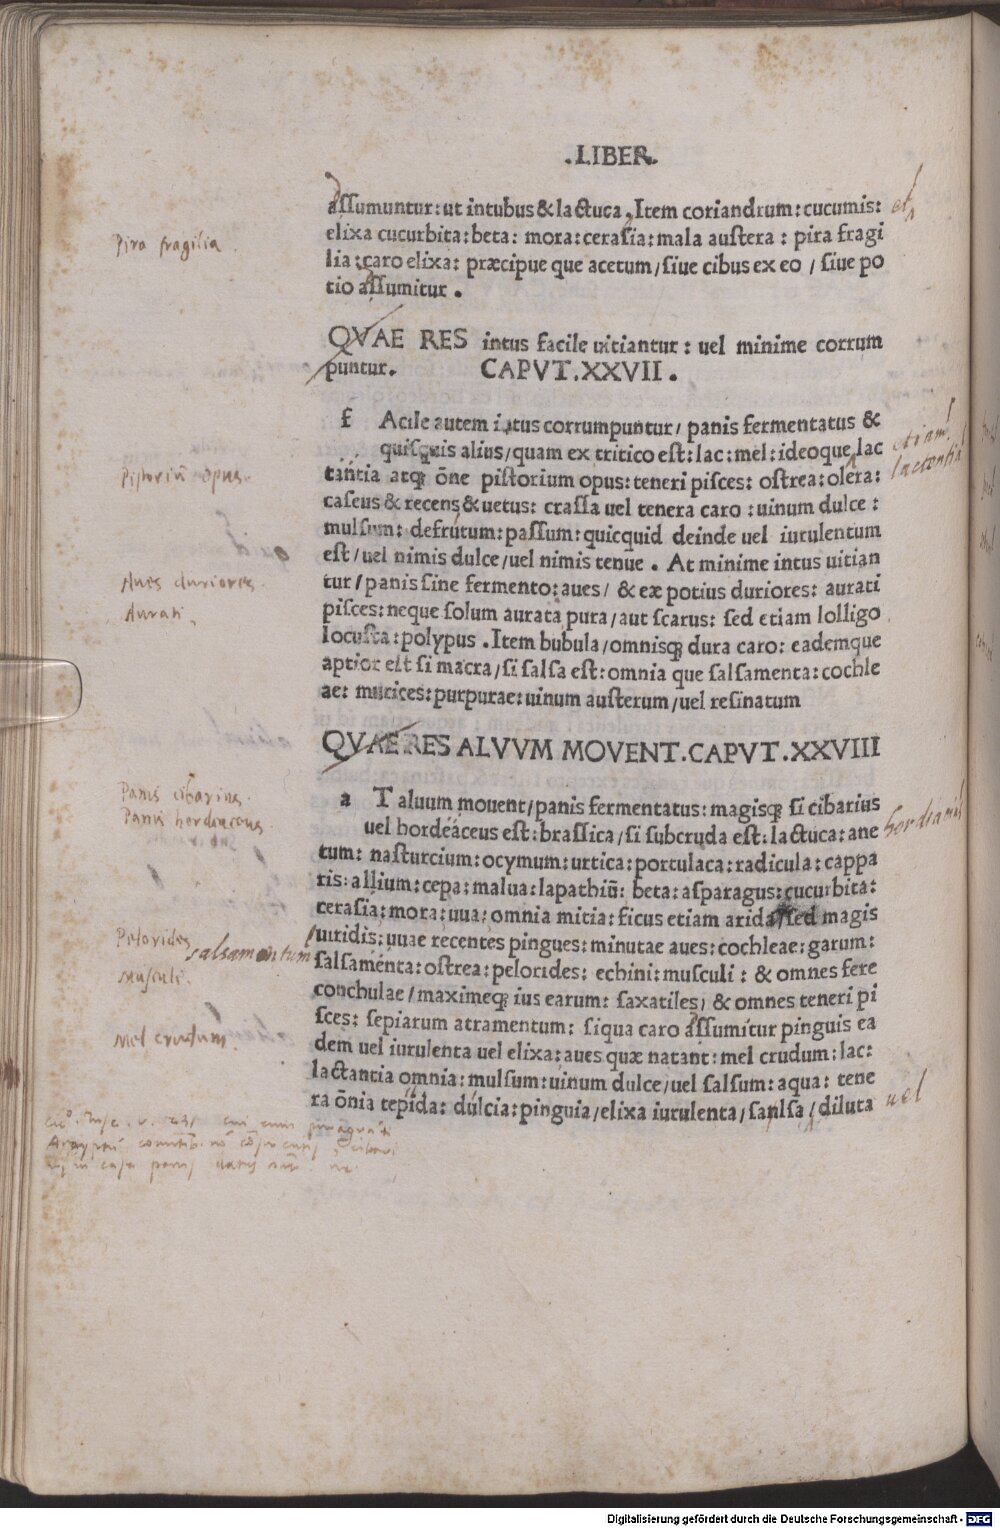 .LIBER.
aſſumuntur:ut intubus & lactuca, Item coriandrum:cucumis: et
elixa cucurbita:beta: mora:ceraſia:mala auſtera : pira fragi
Pira fragilia.
lia:caro elixa: præcipue que acetum/ſiue cibus ex eo / ſiue po
tio aſſumitur .
QVAE RES intus facile uitiantur : uel minime corrum
puntur. CAPVT.XXVII .
f Acile autem intus corrumpuntur/ panis fermentatus &
quiſquis alius/quam ex tritico eſt: lac: mel: ideoque lac
etiam
lactentia
tantia atqꝫ õne piſtorium opus: teneri piſces: oſtrea: olera:
Piſtoriũ opus.
caſeus & recens & uetus: craſſa uel tenera caro : uinum dulce :
mulſum: defrutum: paſſum: quicquid deinde uel iurulentum
eſt/uel nimis dulce/uel nimis tenue . At minime intus uitian
tur/panis ſine fermento: aues/ & eæ potius duriores: aurati
Aues duriores.
piſces: neque ſolum aurata pura/aut ſcarus: ſed etiam lolligo
Aurati.
locuſta: polypus . Item bubula/omnisqꝫ dura caro: eademque
aptior eſt ſi macra/ſi ſalſa eſt: omnia que ſalſamenta: cochle
ae: murices: purpurae: uinum auſterum/uel reſinatum
QVAE RES ALVVM MOVENT.CAPVT.XXVIII
a T aluum mouent/panis fermentatus: magisqꝫ ſi cibarius
Panis cibarius.
uel bordeaceus eſt: braſſica/ſi ſubcruda eſt: lactuca: ane
Panis hordeaceus.
tum: naſturcium: ocymum: urtica: portulaca: radicula: cappa
ris: allium: cepa: malua: lapathiũ: beta: aſparagus: cucurbita:
ceraſia: mora: uua: omnia mitia: ficus etiam arida/ſed magis
uiridis: uuae recentes pingues: minutae aues: cochleae: garum:
Pelorides
salsamentum
ſalſamenta: oſtrea: pelorides: echini: muſculi : & omnes fere
Muſculi.
conchulae/maximeqꝫ ius earum: ſaxatiles, & omnes teneri pi
ſces: ſepiarum atramentum: ſiqua caro aſſumitur pinguis ea
Mel crudum.
dem uel iurulenta uel elixa: aues quæ natant: mel crudum: lac:
lactantia omnia: mulſum: uinum dulce/uel ſalſum: aqua: tene
ra õnia tepida: dulcia: pinguia/elixa iurulenta/ſanlſa/diluta uel
Digitalisierung gefördert durch die Deutsche Forschungsgemeinschaft - DFG